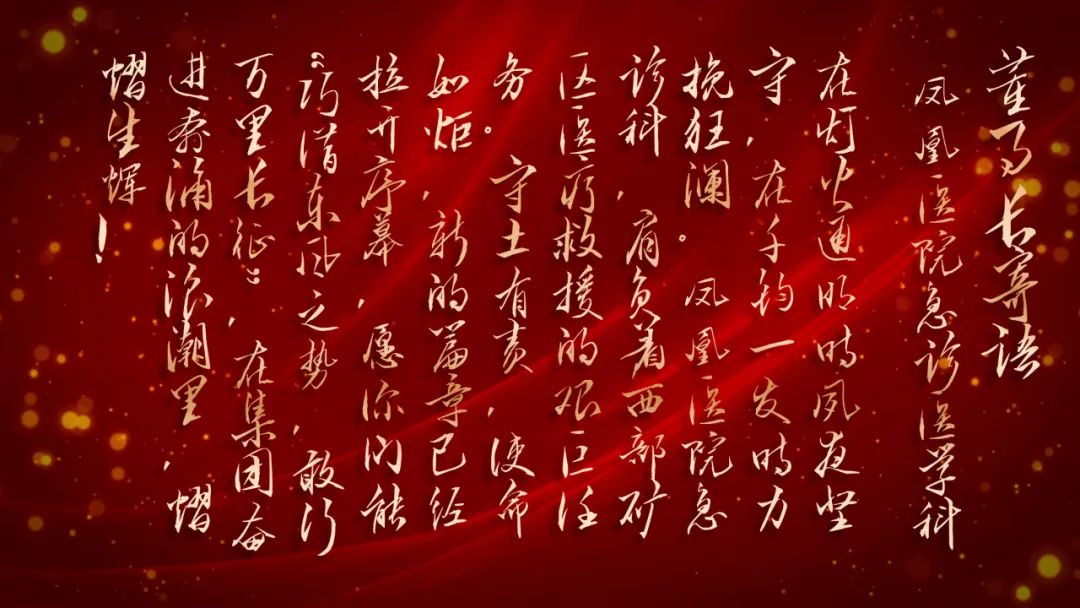 董事长寄语
凤凰医院急诊医学科
在灯火通明时夙夜坚
守，在千钧一发时力
挽狂澜。凤凰医院急
诊科，肩负着西部矿
区医疗救援的艰巨任
务。守土有责，使命
如炬，新的篇章已经
拉开序幕，愿你们能
“巧借东风之势，敢行
万里长征”，在集团奋
进奔涌的浪潮里，熠
熠生辉！